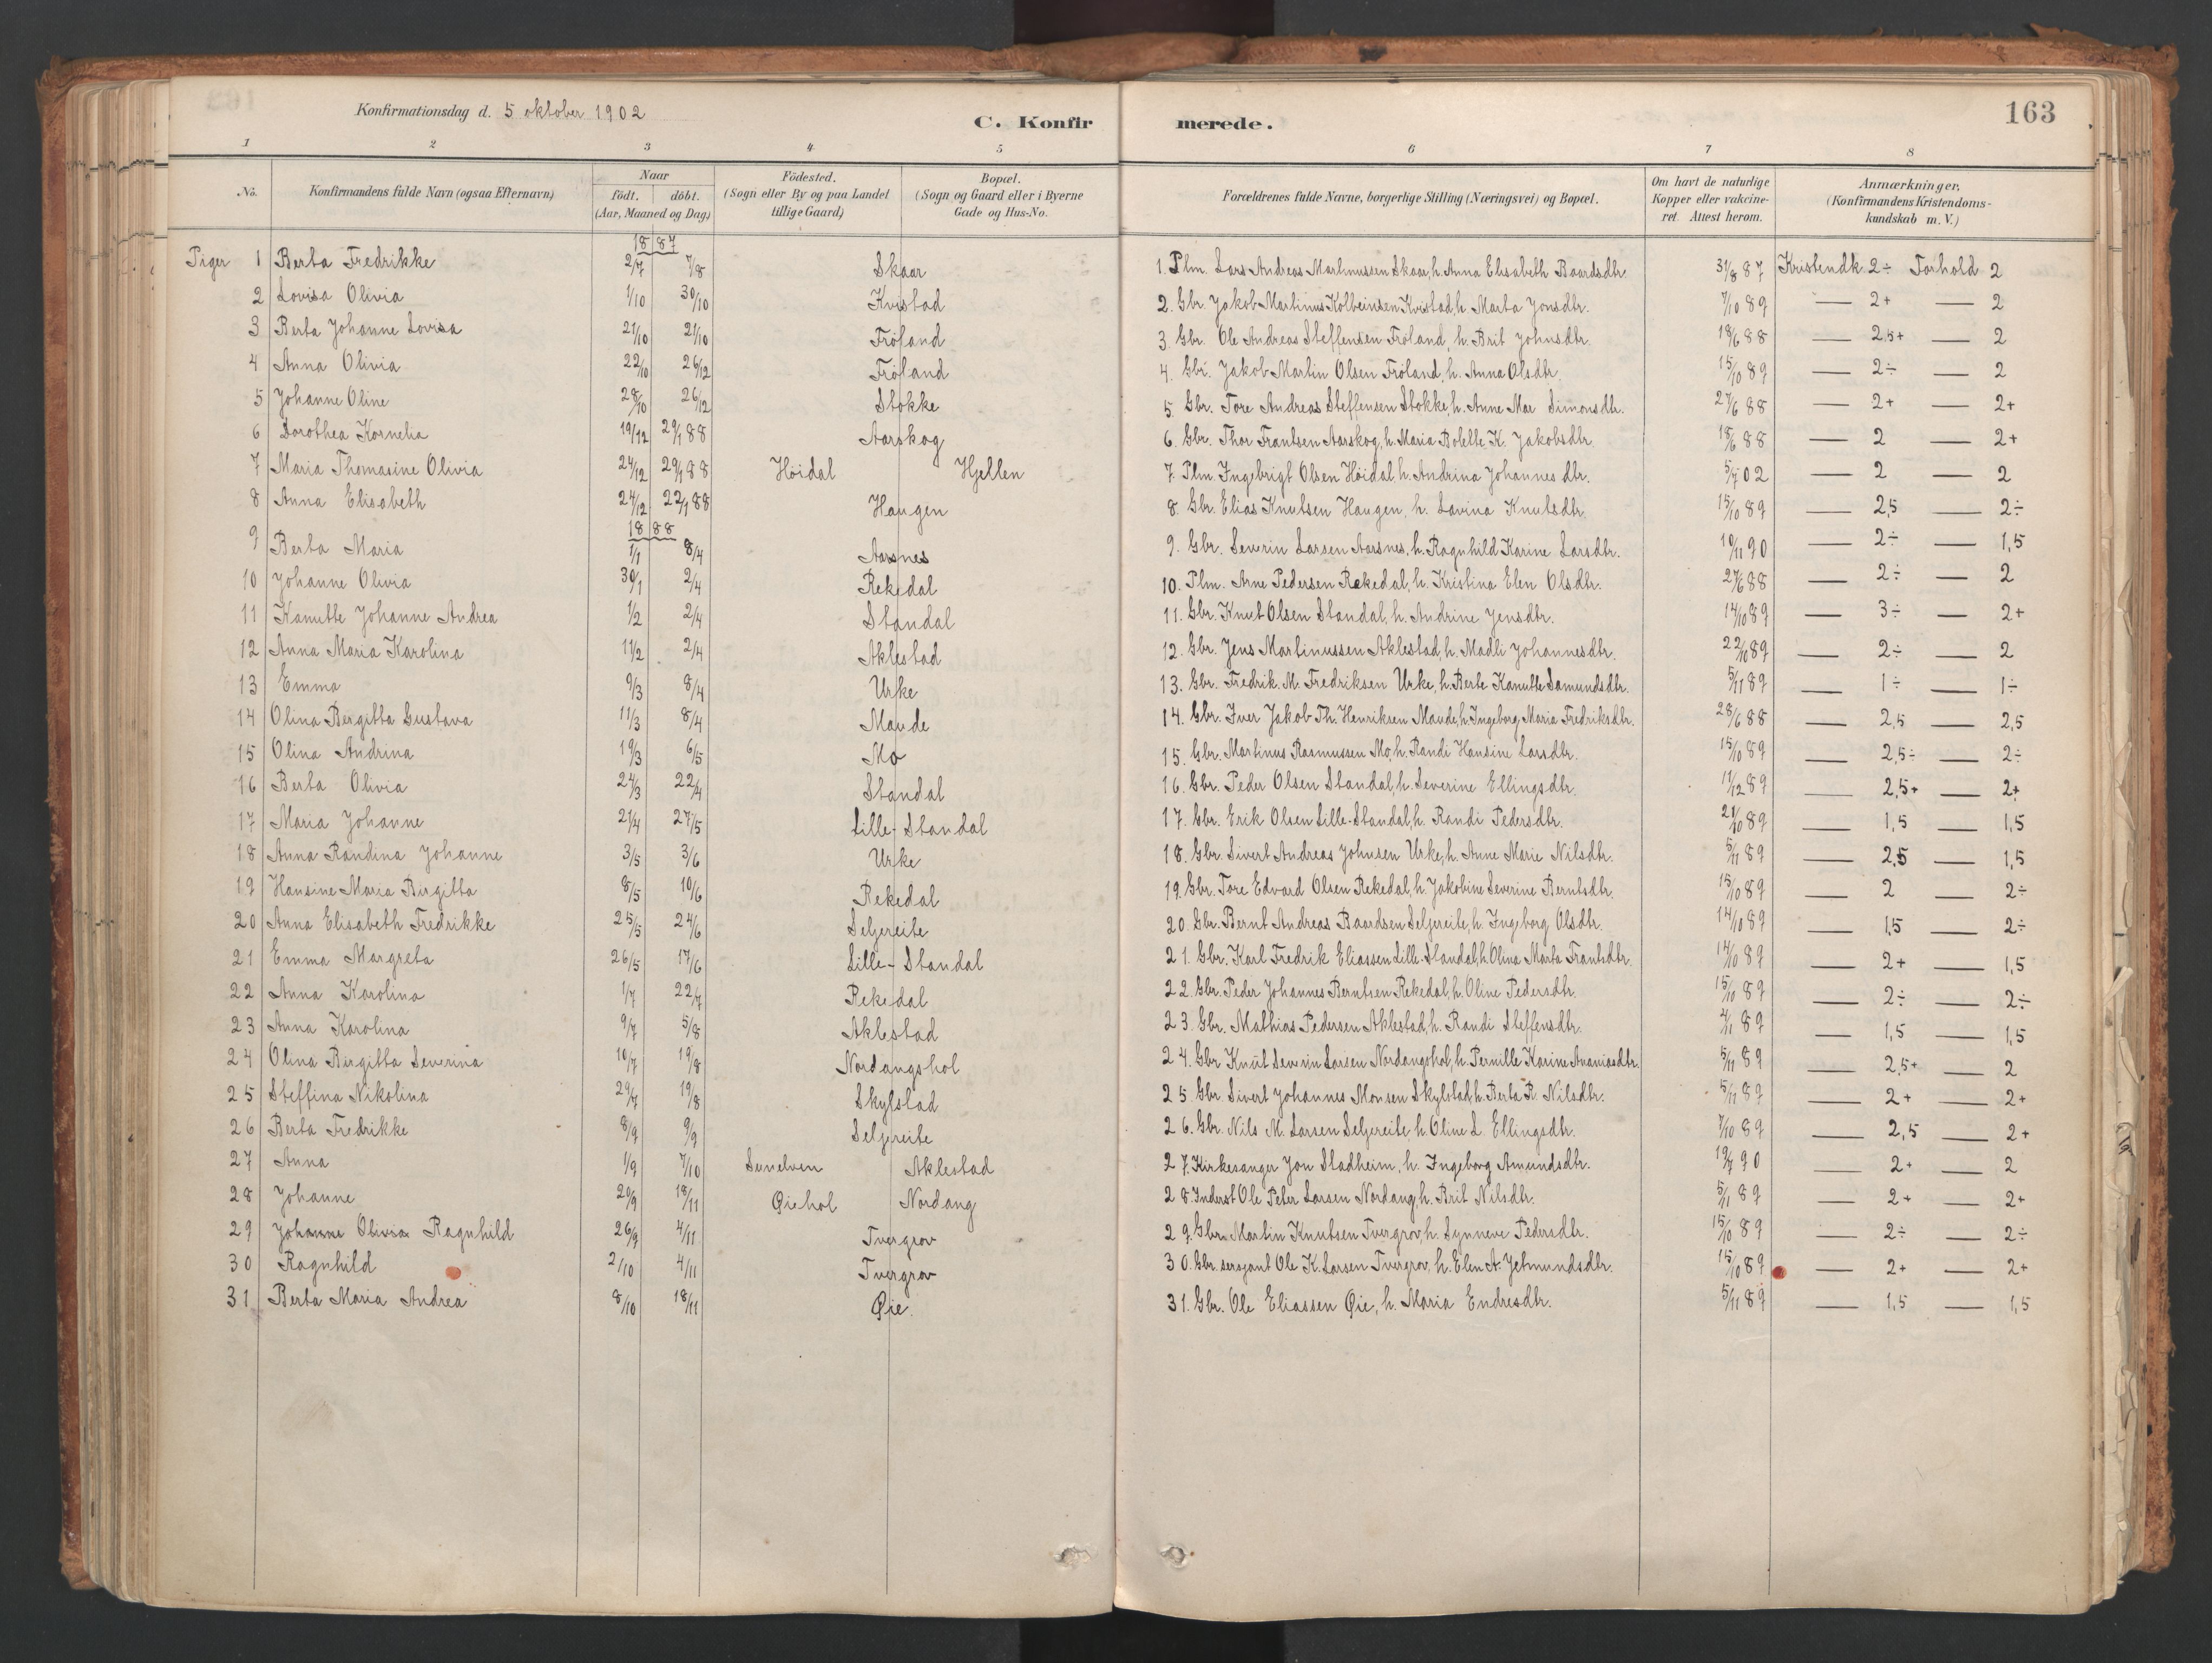 Konfirmationsdag d. 5 oktober 1902
C. Konfirmerede.
163
1 2 3 4 5 6 7 8
No.
Konfirmandens fulde Navn (ogsaa Efternavn)
Naar
födt. döbt.
(Aar, Maaned og Dag)
Födested.
(Sogn eller By og paa Landet
tillige Gaard)
Bopæl.
(Sogn og Gaard eller i Byerne
Gade og Hus-No.
Forældrenes fulde Navne, borgerlige Stilling (Næringsvei) og Bopæl.
Om havt de naturlige
Kopper eller vakcine-
ret. Attest herom.
Anmærkninger,
(Konfirmandens Kristendoms-
kundskab m. V.)
1887
Piger 1 Berta Fredrikke 2/7 7/8 Skaar 1. Plm. Lars Andreas Martinussen Skaar, h. Anna Elisabeth Baardsdtr. 31/8 87 Kristendk. 2÷ Forhold 2
2 Lovisa Olivia 1/10 30/10 Kvistad 2. Gbr. Jakob Martinus Kolbeinsen Kvistad, h. Marta Jonsdtr. 7/10 89 — 2+ — 2
3 Berta Johanne Lovisa 21/10 21/10 Fröland 3. Gbr. Ole Andreas Steffensen Fröland, h. Brit Johnsdtr. 18/6 88 — 2,5+ — 2
4 Anna Olivia 22/10 26/12 Fröland 4. Gbr. Jakob Martin Olsen Fröland, h. Anna Olsdtr. 15/10 89 — 2÷ — 2
5 Johanne Oline 28/10 26/12 Stokke 5. Gbr. Tore Andreas Steffensen Stokke, h. Anne Mar Simonsdtr. 27/6 88 — 2+ — 2+
6 Dorothea Kornelia 19/12 29/1 88 Aarskog 6. Gbr. Thor Frantsen Aarskog, h. Maria Bolette K. Jakobsdtr. 18/6 88 — 2 — 2+
7 Maria Thomasine Olivia 24/12 29/1 88 Höidal Hjellen 7. Plm. Ingebrigt Olsen Höidal, h. Andrina Johannesdtr. 5/7 02 — 2 — 2
8 Anna Elisabeth 24/12 22/1 88 Haugen 8. Gbr. Elias Knutsen Haugen, h. Lavina Knutsdtr. 15/10 89 — 2,5 — 2÷
1888
9 Berta Maria 1/1 8/4 Aarsnes 9. Gbr. Severin Larsen Aarsnes, h. Ragnhild Karine Larsdtr. 10/11 90 — 2÷ — 1,5
10 Johanne Olivia 30/1 2/4 Rekedal 10. Plm. Arne Pedersen Rekedal, h. Kristina Elen Olsdtr. 27/6 88 — 2÷ — 2
11 Kanutte Johanne Andrea 1/2 2/4 Standal 11. Gbr. Knut Olsen Standal, h. Andrine Jensdtr. 14/10 89 — 3÷ — 2+
12 Anna Maria Karolina 11/2 2/4 Aklestad 12. Gbr. Jens Martinussen Aklestad, h. Madli Johannesdtr. 22/10 89 — 2÷ — 2
13 Emma 9/3 8/4 Urke 13. Gbr. Fredrik M. Fredriksen Urke, h. Berte Kanutte Samundsdtr. 5/11 89 — 1÷ — 1÷
14 Olina Birgitta Gustava 11/3 8/4 Maude 14. Gbr. Iver Jakob Th. Henriksen Maude, h. Ingeborg Maria Fredriksdtr. 28/6 88 — 2,5 — 2,5
15 Olina Andrina 19/3 6/5 Mo 15. Gbr. Martinus Rasmussen Mo, h. Randi Hansine Larsdtr. 15/10 89 — 2,5÷ — 2÷
16 Berta Olivia 24/3 22/4 Standal 16. Gbr. Peder Olsen Standal, h. Severine Ellingsdtr. 11/12 89 — 2,5+ — 2+
17 Maria Johanne 21/4 27/5 Lille-Standal 17. Gbr. Erik Olsen Lille-Standal, h. Randi Pedersdtr. 21/10 89 — 1,5 — 1,5
18 Anna Randina Johanne 3/5 3/6 Urke 18. Gbr. Sivert Andreas Johnsen Urke, h. Anne Marie Nilsdtr. 5/11 89 — 2,5 — 1,5
19 Hansine Maria Birgitta 8/5 10/6 Rekedal 19. Gbr. Tore Edvard Olsen Rekedal, h. Jakobine Severine Berntsdtr. 15/10 89 — 2 — 2÷
20 Anna Elisabeth Fredrikke 25/5 24/6 Seljereite 20. Gbr. Bernt Andreas Baardsen Seljereite, h. Ingeborg Olsdtr. 14/10 89 — 1,5 — 2÷
21 Emma Margreta 26/5 17/6 Lille-Standal 21. Gbr. Karl Fredrik Eliassen Lille-Standal, h. Olina Marta Frantsdtr. 14/10 89 — 2+ — 1,5
22 Anna Karolina 1/7 22/7 Rekedal 22. Gbr. Peder Johannes Berntsen Rekedal, h. Oline Pedersdtr. 15/10 89 — 2÷ — 2÷
23 Anna Karolina 9/7 5/8 Aklestad 23. Gbr. Mathias Pedersen Aklestad, h. Randi Steffensdtr. 4/11 89 — 1,5 — 1,5
24 Olina Birgitta Severina 10/7 19/8 Nordangshol 24. Gbr Knut Severin Larsen Nordangshol, h. Pernille Karine Ananiasdtr. 5/11 89 — 2,5+ — 2
25 Steffina Nikolina 29/7 19/8 Skylstad 25. Gbr Sivert Johannes Monsen Skylstad, h. Berta R. Nilsdtr. 5/11 89 — 2+ — 2+
26 Berta Fredrikke 8/9 9/9 Seljereite 26. Gbr. Nils M. Larsen Seljereite, h. Oline L. Ellingsdtr. 7/10 89 — 2,5 — 2+
27 Anna 1/9 7/10 Sunelven Aklestad 27. Kirkesanger Jon Stadheim, h. Ingeborg Amundsdtr. 19/7 90 — 2+ — 2
28 Johanne 20/9 18/11 Øiehol Nordang 28. Inderst Ole Peter Larsen Nordang, h. Brit Nilsdtr. 5/11 89 — 2+ — 2+
29 Johanne Olivia Ragnhild 26/9 4/11 Tvergrov 29. Gbr. Martin Knutsen Tvergrov, h. Synneve Pedersdtr. 15/10 89 — 2÷ — 2÷
30 Ragnhild 2/10 4/11 Tvergrov 30. Gbr. sersjant Ole K. Larsen Tvergrov, h. Elen A. Jetmundsdtr. 15/10 89 — 2+ — 2+
31 Berta Maria Andrea 8/10 18/11 Øie. 31. Gbr. Ole Eliassen Øie, h. Maria Endresdtr. 5/11 89 — 1,5 — 1,5